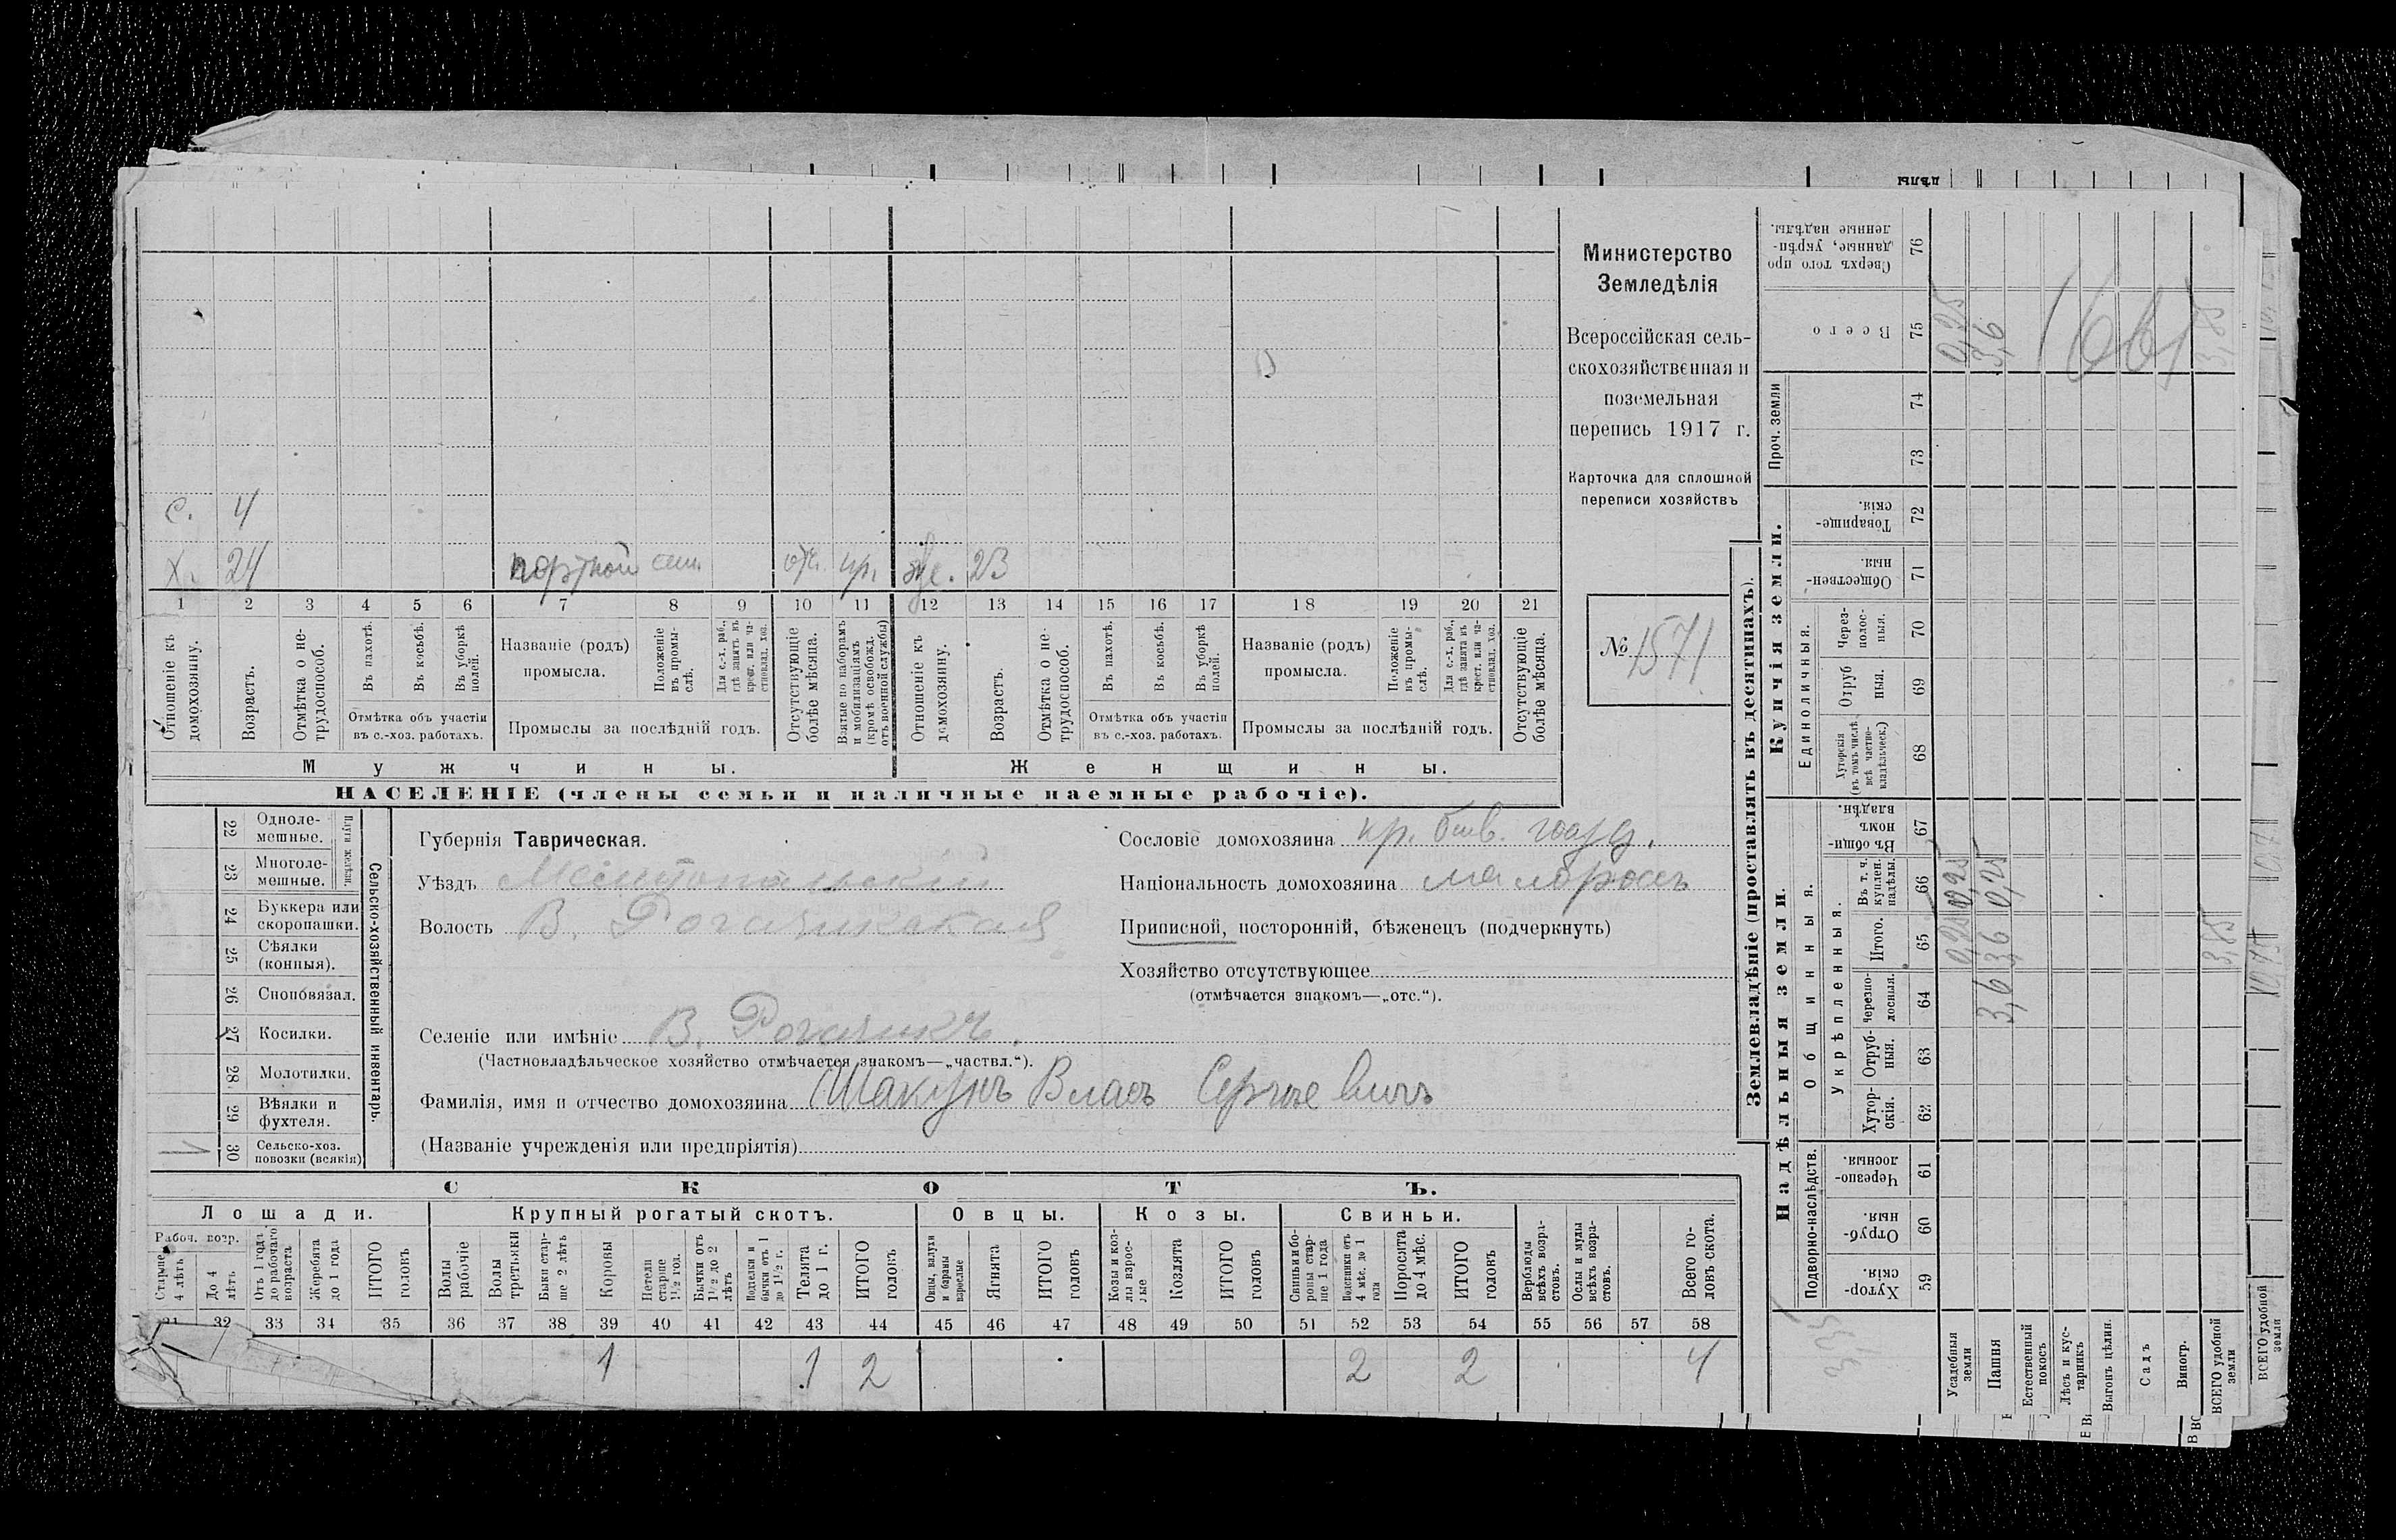 Министерство
Земледѣлія
Всероссійская сель-
скохозяйственная и
поземельная
перепись 1917 г.
Карточка для сплошной
переписи хозяйствъ
№ 1571
с. 4
х. 24 портной отс. пр. же. 23
1 2 3 4 5 6 7 8 9 10 11 12 13 14 15 16 17 18 19 20 21
Отношеніе къ домохозяину.
Возрастъ.
Отмѣтка о не-трудоспособ.
Въ пахотѣ.
Въ косьбѣ.
Въ уборкѣ полей.
Отмѣтка объ участіи въ с.-хоз. работахъ.
Названіе (родъ) промысла.
Положеніе въ промы-слѣ.
Для с.-х. раб., гдѣ занятъ въ крест. или ча-стновлад. хоз.
Промыслы за послѣдній годъ.
Отсутствующіе болѣе мѣсяца.
Взятые по наборамъ и мобилизаціямъ (кромѣ освобожд. отъ военной службы)
Отношеніе къ домохозяину.
Возрастъ.
Отмѣтка о не-трудоспособ.
Въ пахотѣ.
Въ косьбѣ.
Въ уборкѣ полей.
Отмѣтка объ участіи въ с.-хоз. работахъ.
Названіе (родъ) промысла.
Положеніе въ промы-слѣ.
Для с.-х. раб., гдѣ занята въ крест. или ча-стновлад. хоз.
Промыслы за послѣдній годъ.
Отсутствующіе болѣе мѣсяца.
Мужчины. Женщины.
НАСЕЛЕНІЕ (члены семьи и наличные наемные рабочіе).
Сельско-хозяйственный инвентарь.
Плуги желѣзн.
22 Одноле-мешные.
23 Многоле-мешные.
24 Буккера или скоропашки.
25 Сѣялки (конныя).
26 Сноповязал.
27 Косилки.
28 Молотилки.
29 Вѣялки и фухтеля.
30 Сельско-хоз. повозки (всякія)
Губернія Таврическая.
Уѣздъ Мелитопольскій
Волость В. Рогачикская
Селеніе или имѣніе В. Рогачикъ.
(Частновладѣльческое хозяйство отмѣчается знакомъ—„частвл.“).
Фамилія, имя и отчество домохозяина Шакунъ Власъ Сергѣевичъ
(Названіе учрежденія или предпріятія)
Сословіе домохозяина кр. быв. госуд.
Національность домохозяина малороссъ
Приписной, посторонній, бѣженецъ (подчеркнуть)
Хозяйство отсутствующее
(отмѣчается знакомъ—„отс.“).
СКОТЪ.
Лошади. Крупный рогатый скотъ. Овцы. Козы. Свиньи.
Рабоч. возр.
Старше 4 лѣтъ
До 4 лѣтъ
Отъ 1 года до рабочаго возраста
Жеребята до 1 года
ИТОГО головъ
Волы рабочіе
Волы третьяки
Быки стар-ше 2 лѣтъ
Коровы
Нетели старше 1½ год.
Бычки отъ 1½ до 2 лѣтъ
Подтелки и бычки отъ 1 до 1½ г.
Телята до 1 г.
ИТОГО головъ
Овцы, валухи и бараны взрослые
Ягнята
ИТОГО головъ
Козы и коз-лы взрос-лые
Козлята
ИТОГО головъ
Свиньи и бо-ровы стар-ше 1 года
Подсвинки отъ 4 мѣс. до 1 года
Поросята до 4 мѣс.
ИТОГО головъ
Верблюды всѣхъ возра-стовъ.
Ослы и мулы всѣхъ возра-стовъ.
Всего го-ловъ скота.
31 32 33 34 35 36 37 38 39 40 41 42 43 44 45 46 47 48 49 50 51 52 53 54 55 56 57 58
1 1 2 2 2 4
Землевладѣніе (проставлять въ десятинахъ).
Надѣльныя земли. Купчія земли.
Подворно-наслѣдств.
Общинныя.
Укрѣпленныя.
Единоличныя.
Проч. земли
59 Хутор-скія.
60 Отруб-ныя.
61 Черезпо-лосныя.
62 Хутор-скія.
63 Отруб-ныя.
64 Черезпо-лосныя.
65 Итого.
66 Въ т. ч. куплен. надѣлы.
67 Въ общин-номъ владѣн.
68 Хуторскія (въ томъ числѣ всѣ частно-владѣльческ.)
69 Отруб ныя.
70 Через-полос-ныя.
71 Обществен-ныя.
72 Товарище-скія.
73
74
75 Всего
76 Сверхъ того про данные, укрѣп-ленные надѣлы.
Усадебныя земли 0,25 0,25 0,25
Пашня 3,6 3,6 3,6
Естественный покосъ
Лѣсъ и кус-тарникъ
Выгонъ цѣлин.
Садъ
Виногр.
ВСЕГО удобной земли 3,85 3,85
ВСЕГО удобной земли